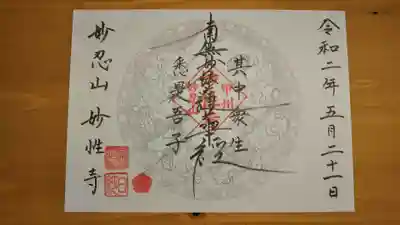 令和二年五月二十一日
其中衆生
南無妙法蓮華経
悉是吾子
妙忍山 妙性寺